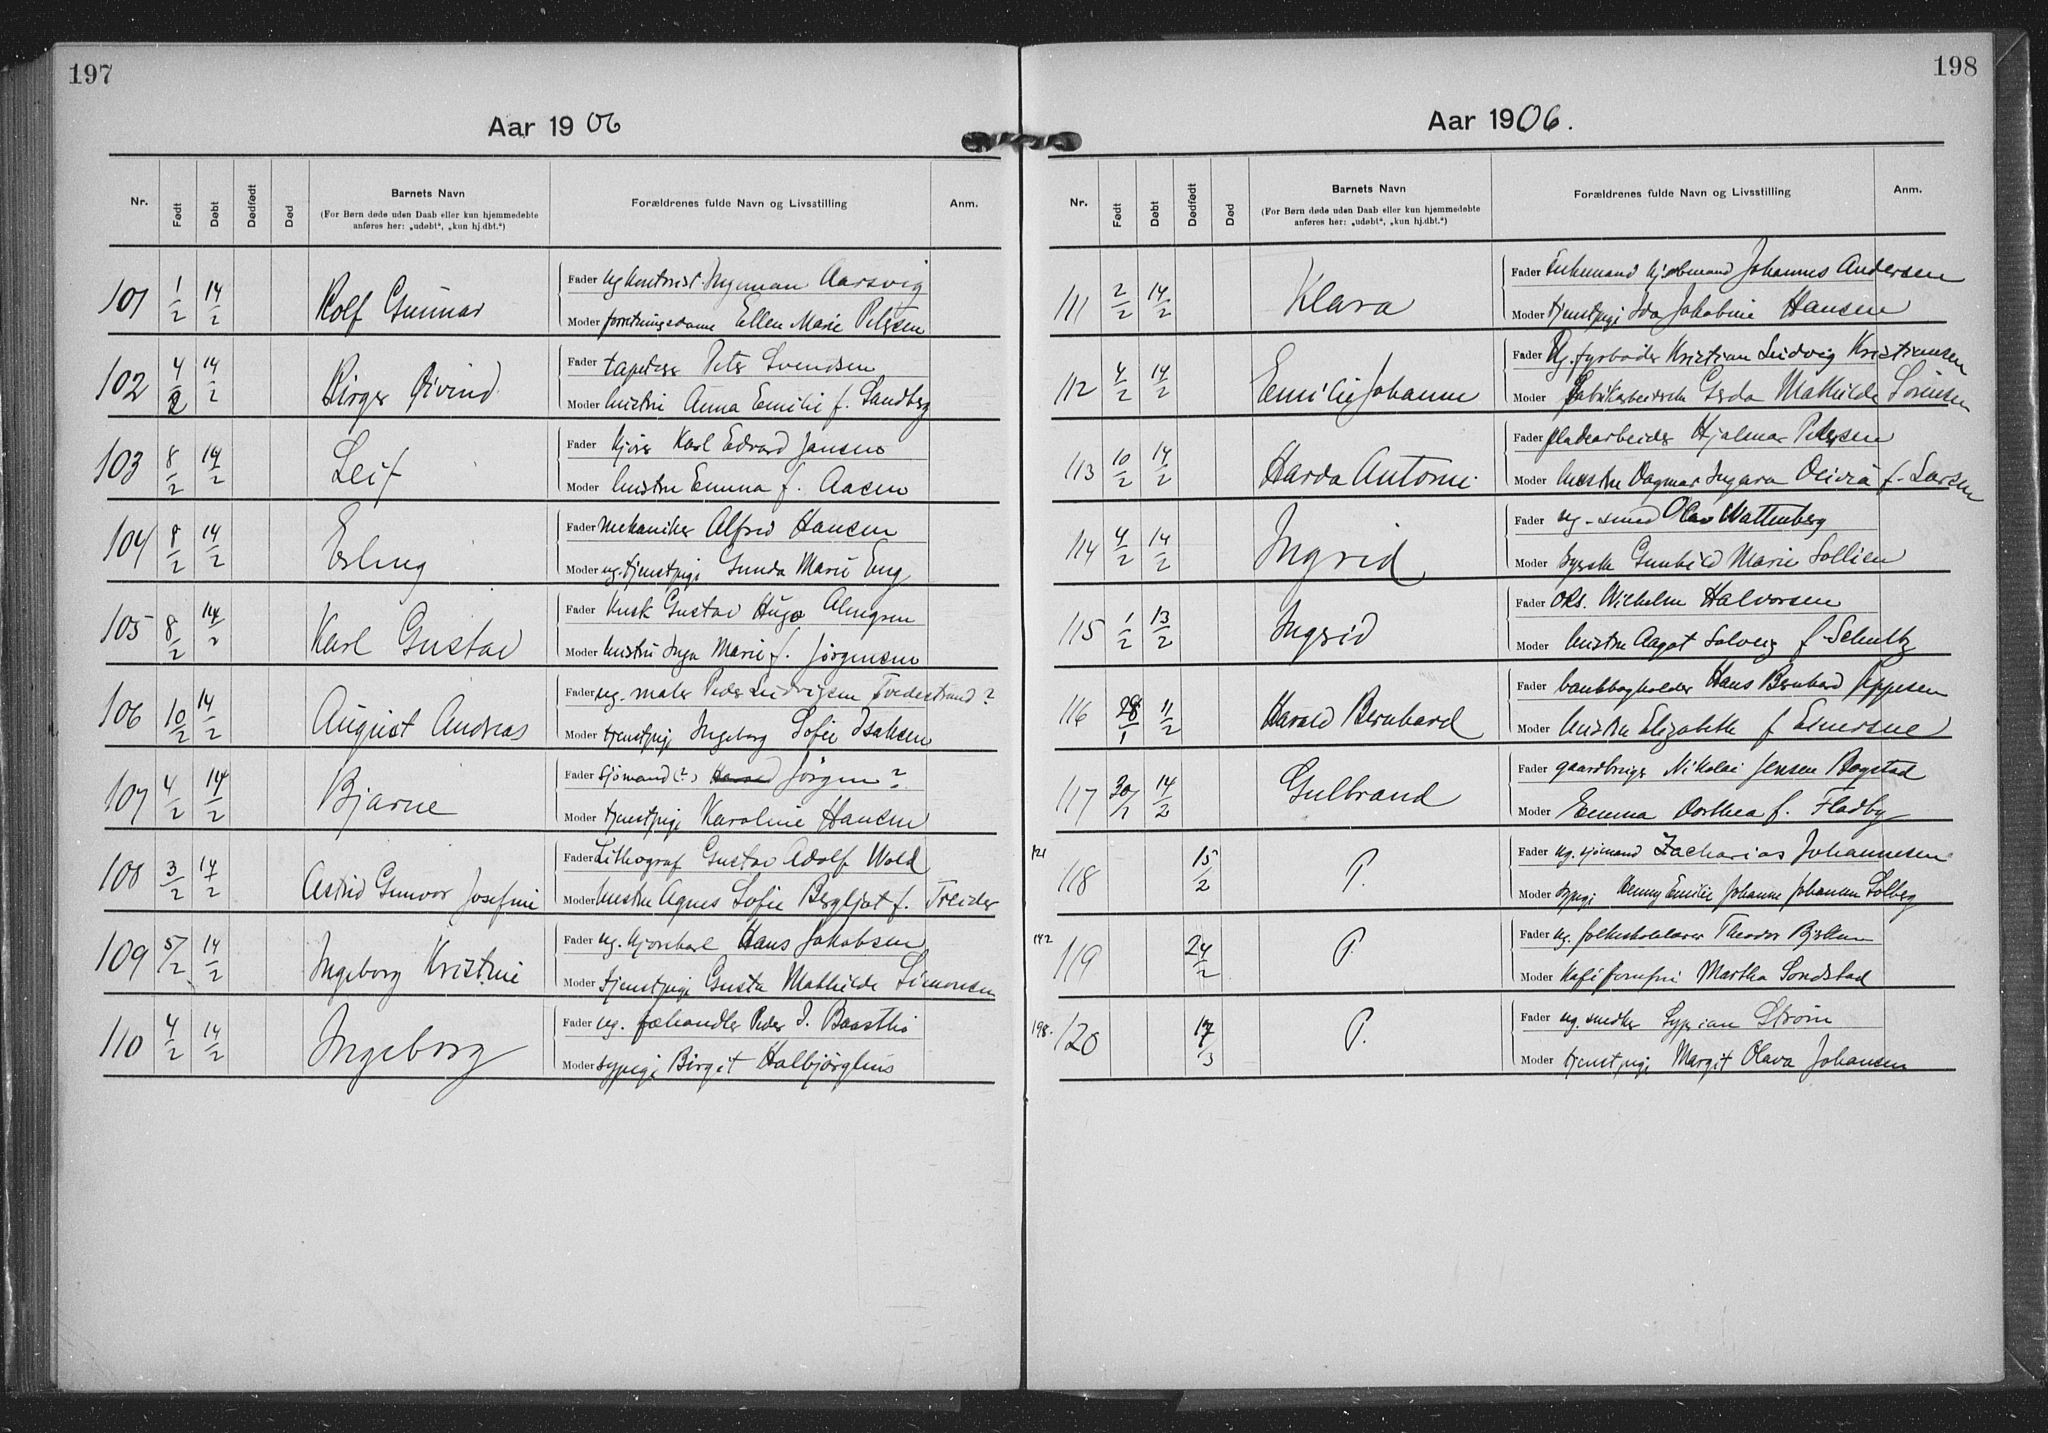 197
Aar 1906
Nr. Født Døbt Dødfødt Død Barnets Navn Forældrenes fulde Navn og Livsstilling Anm.
(For Børn døde uden Daab eller kun hjemmedøbte
anføres her: „udøbt“, „kun hj.dbt.“)
101 1/2 14/2 Rolf Gunnar Fader Ingeman Aarsvig
Moder forretningsdame Ellen Marie Petersen
102 4/2 14/2 Birger Øivind Fader tapetserer Peter Svendsen
Moder hustru Anna Emilie f. Sandberg
103 8/2 14/2 Leif Fader kjører Karl Edvard Jansen
Moder hustru Emma f. Aasen
104 8/2 14/2 Erling Fader mekaniker Alfred Hansen
Moder ug. tjenstpige Gunda Marie Eng
105 8/2 14/2 Karl Gustav Fader kusk Gustav Hugo Almgren
Moder hustru Inga Marie f. Jørgensen
106 10/2 14/2 August Andreas Fader ug. maler Peder Ludvigsen Tvedestrand?
Moder tjenstpige Ingeborg Sofie Isaksen
107 4/2 14/2 Bjarne Fader sjømand (?) Jörgen?
Moder tjenstpige Karoline Hansen
108 3/2 14/2 Astrid Gunvor Josefine Fader Lithograf Gustav Adolf Wold
Moder hustru Agnes Sofie Bergljot f. Treider
109 5/2 14/2 Ingeborg Kristine Fader ug. kjørekarl Hans Jakobsen
Moder tjenstpige Gusta Mathilde Simonsen
110 4/2 14/2 Ingeborg Fader ug. fæhandler Peder J.
Moder sypige Birgit
198
Aar 1906.
Nr. Født Døbt Dødfødt Død Barnets Navn Forældrenes fulde Navn og Livsstilling Anm.
(For Børn døde uden Daab eller kun hjemmedøbte
anføres her: „udøbt“, „kun hj.dbt.“)
111 2/2 14/2 Klara Fader Enkemand kjøbmand Johannes Andersen
Moder tjenstpige Ida Jakobine Hansen
112 4/2 14/2 Emilie Johanne Fader Ug. fyrbøder Kristian Ludvig Kristiansen
Moder fabrikarbeiderske Gerda Mathilde Sørensen
113 10/2 14/2 Harda Antonie Fader pladearbeider Hjalmar Petersen
Moder hustru Dagmar Ingara Olivia f. Larsen
114 4/2 14/2 Ingrid Fader ug. smed Olav Wattenberg
Moder syerske Gunhild Marie Sollien
115 1/2 13/2 Ingrid Fader Wilhelm Halvorsen
Moder hustru Aagot Solveig f. Schultz
116 28/1 11/2 Harald Bernhard Fader bankbogholder Hans Bernhard Jppesen
Moder hustru Elizabeth f
117 30/1 14/2 Gulbrand Fader gaardbruger Nikolai Jensen Bogstad
Moder Emma Dorthea f. Fladby
121 118 15/2 P. Fader ug. sjømand Zacharias Johannesen
Moder sypige Henny Emilie Johanne Johansen Solberg
142 119 24/2 P. Fader ug. folkeskolelærer Theodor
Moder Martha Sondstad
198. 120 17/3 P. Fader ug. snedker Syprian Strøm
Moder tjenstpige Margit Olava Johansen